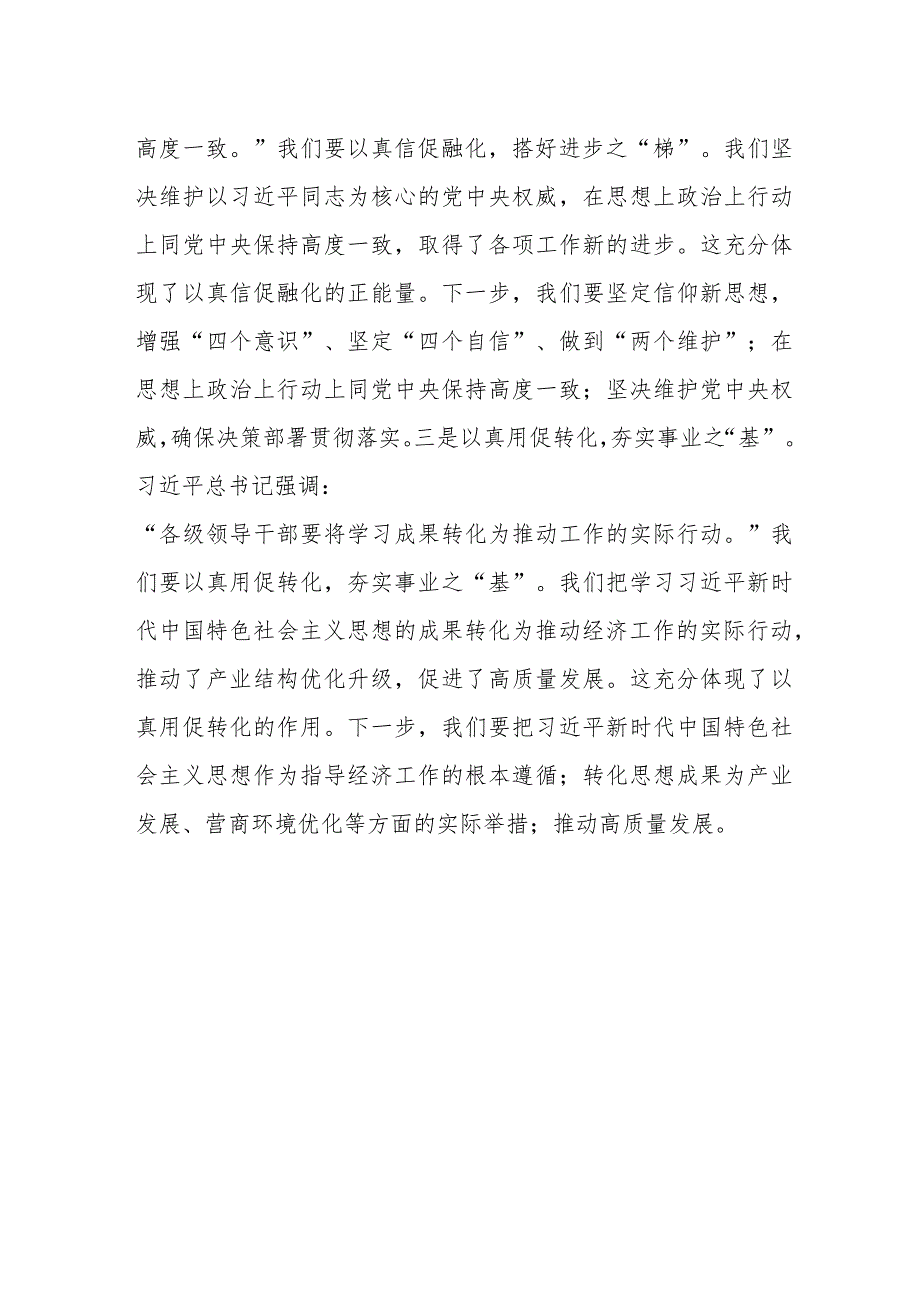 高度一致。”我们要以真信促融化，搭好进步之“梯”。我们坚
决维护以习近平同志为核心的党中央权威，在思想上政治上行动
上同党中央保持高度一致，取得了各项工作新的进步。这充分体
现了以真信促融化的正能量。下一步，我们要坚定信仰新思想，
增强“四个意识”、坚定“四个自信”、做到“两个维护”；在
思想上政治上行动上同党中央保持高度一致；坚决维护党中央权
威，确保决策部署贯彻落实。三是以真用促转化，夯实事业之“基”。
习近平总书记强调：
“各级领导干部要将学习成果转化为推动工作的实际行动。”我
们要以真用促转化，夯实事业之“基”。我们把学习习近平新时
代中国特色社会主义思想的成果转化为推动经济工作的实际行动，
推动了产业结构优化升级，促进了高质量发展。这充分体现了以
真用促转化的作用。下一步，我们要把习近平新时代中国特色社
会主义思想作为指导经济工作的根本遵循；转化思想成果为产业
发展、营商环境优化等方面的实际举措；推动高质量发展。